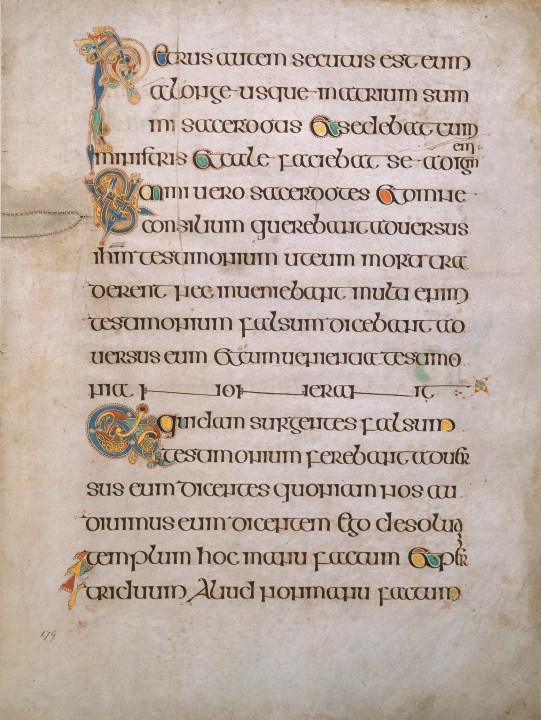 Petrus autem secutus est eum
alonge usque inatrium sum
mi sacerdotis Et sedebat cum
em
ministris Et cale faciebat se adign
Summi uero sacerdotes Et omne
consilium querebant aduersus
ihm testimonium uteum morti tra
derent nec inueniebant multi enim
testimonium falsum dicebant ad
uersus eum Et conuenientia testimo
nia non erant
Et quidam surgentes falsum
testimonium ferebant aduer
sus eum dicentes quoniam nos au
diuimus eum dicentem Ego desolua
templum hoc manu factum Et post
triduum Aliud non manu factum
179